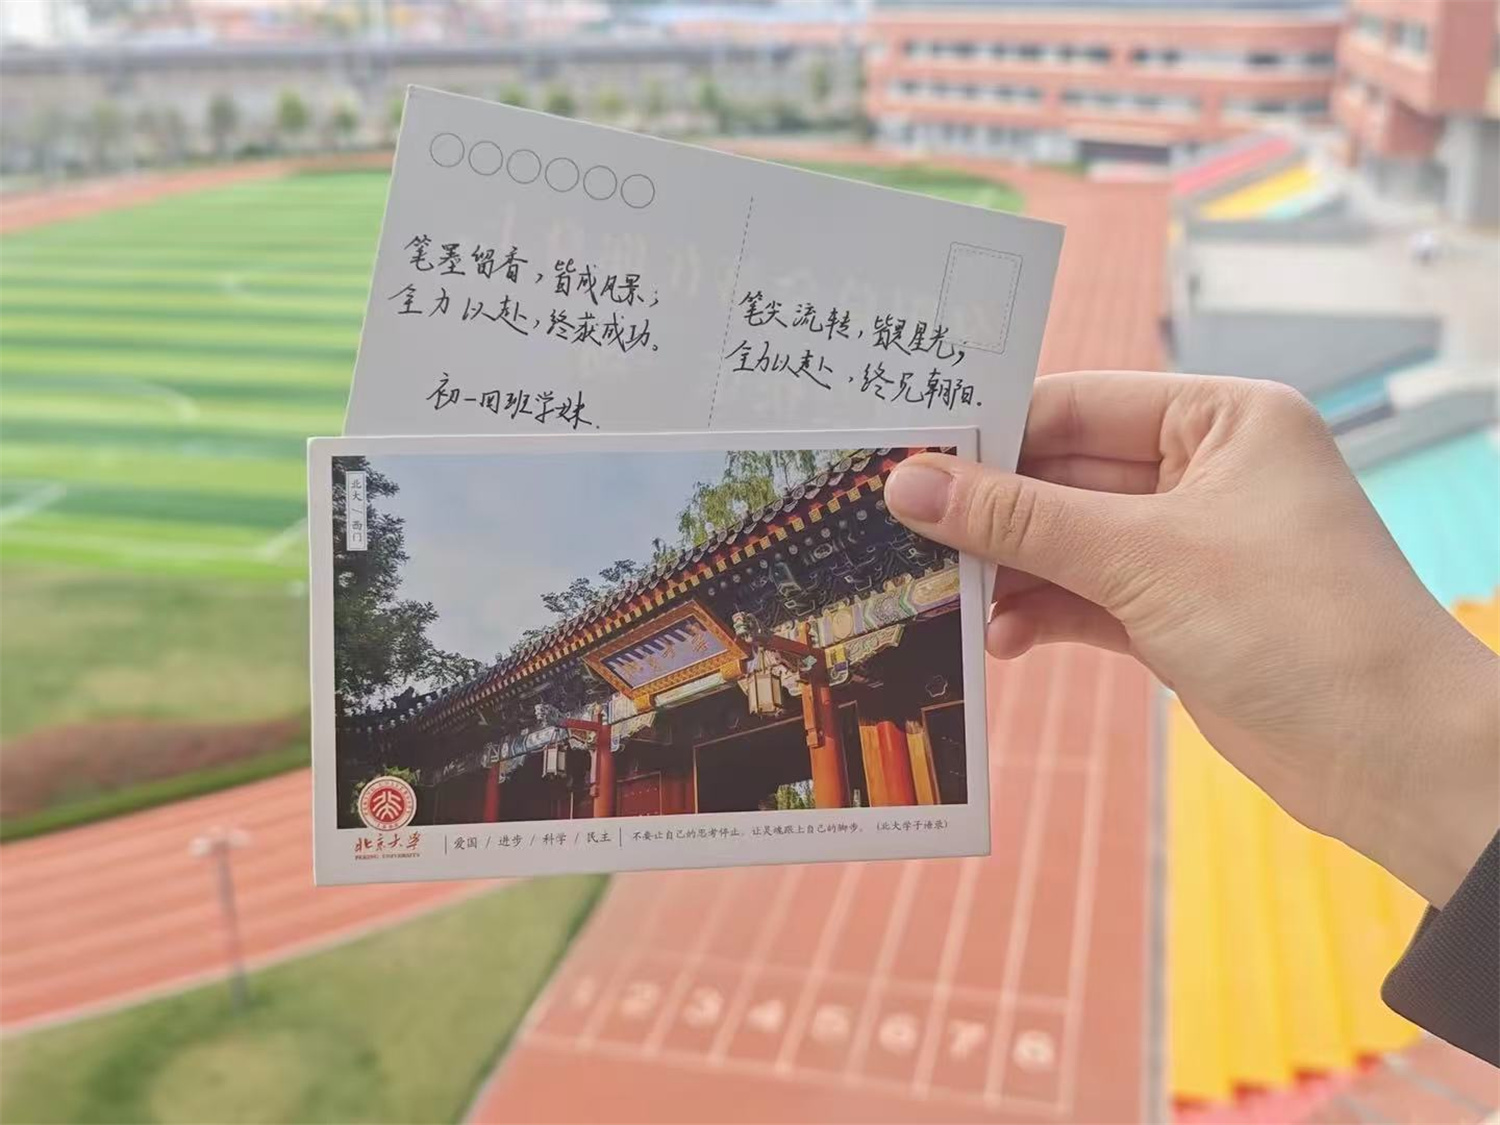 笔墨留香，皆成风景；
全力以赴，终获成功。
初一四班学妹.
笔尖流转，皆是星光；
全力以赴，终见朝阳.
北大/西门
北京大学
PEKING UNIVERSITY
爱国 / 进步 / 科学 / 民主
不要让自己的思考停止，让灵魂跟上自己的脚步。（北大学子语录）
1 2 3 4 5 6 7 8